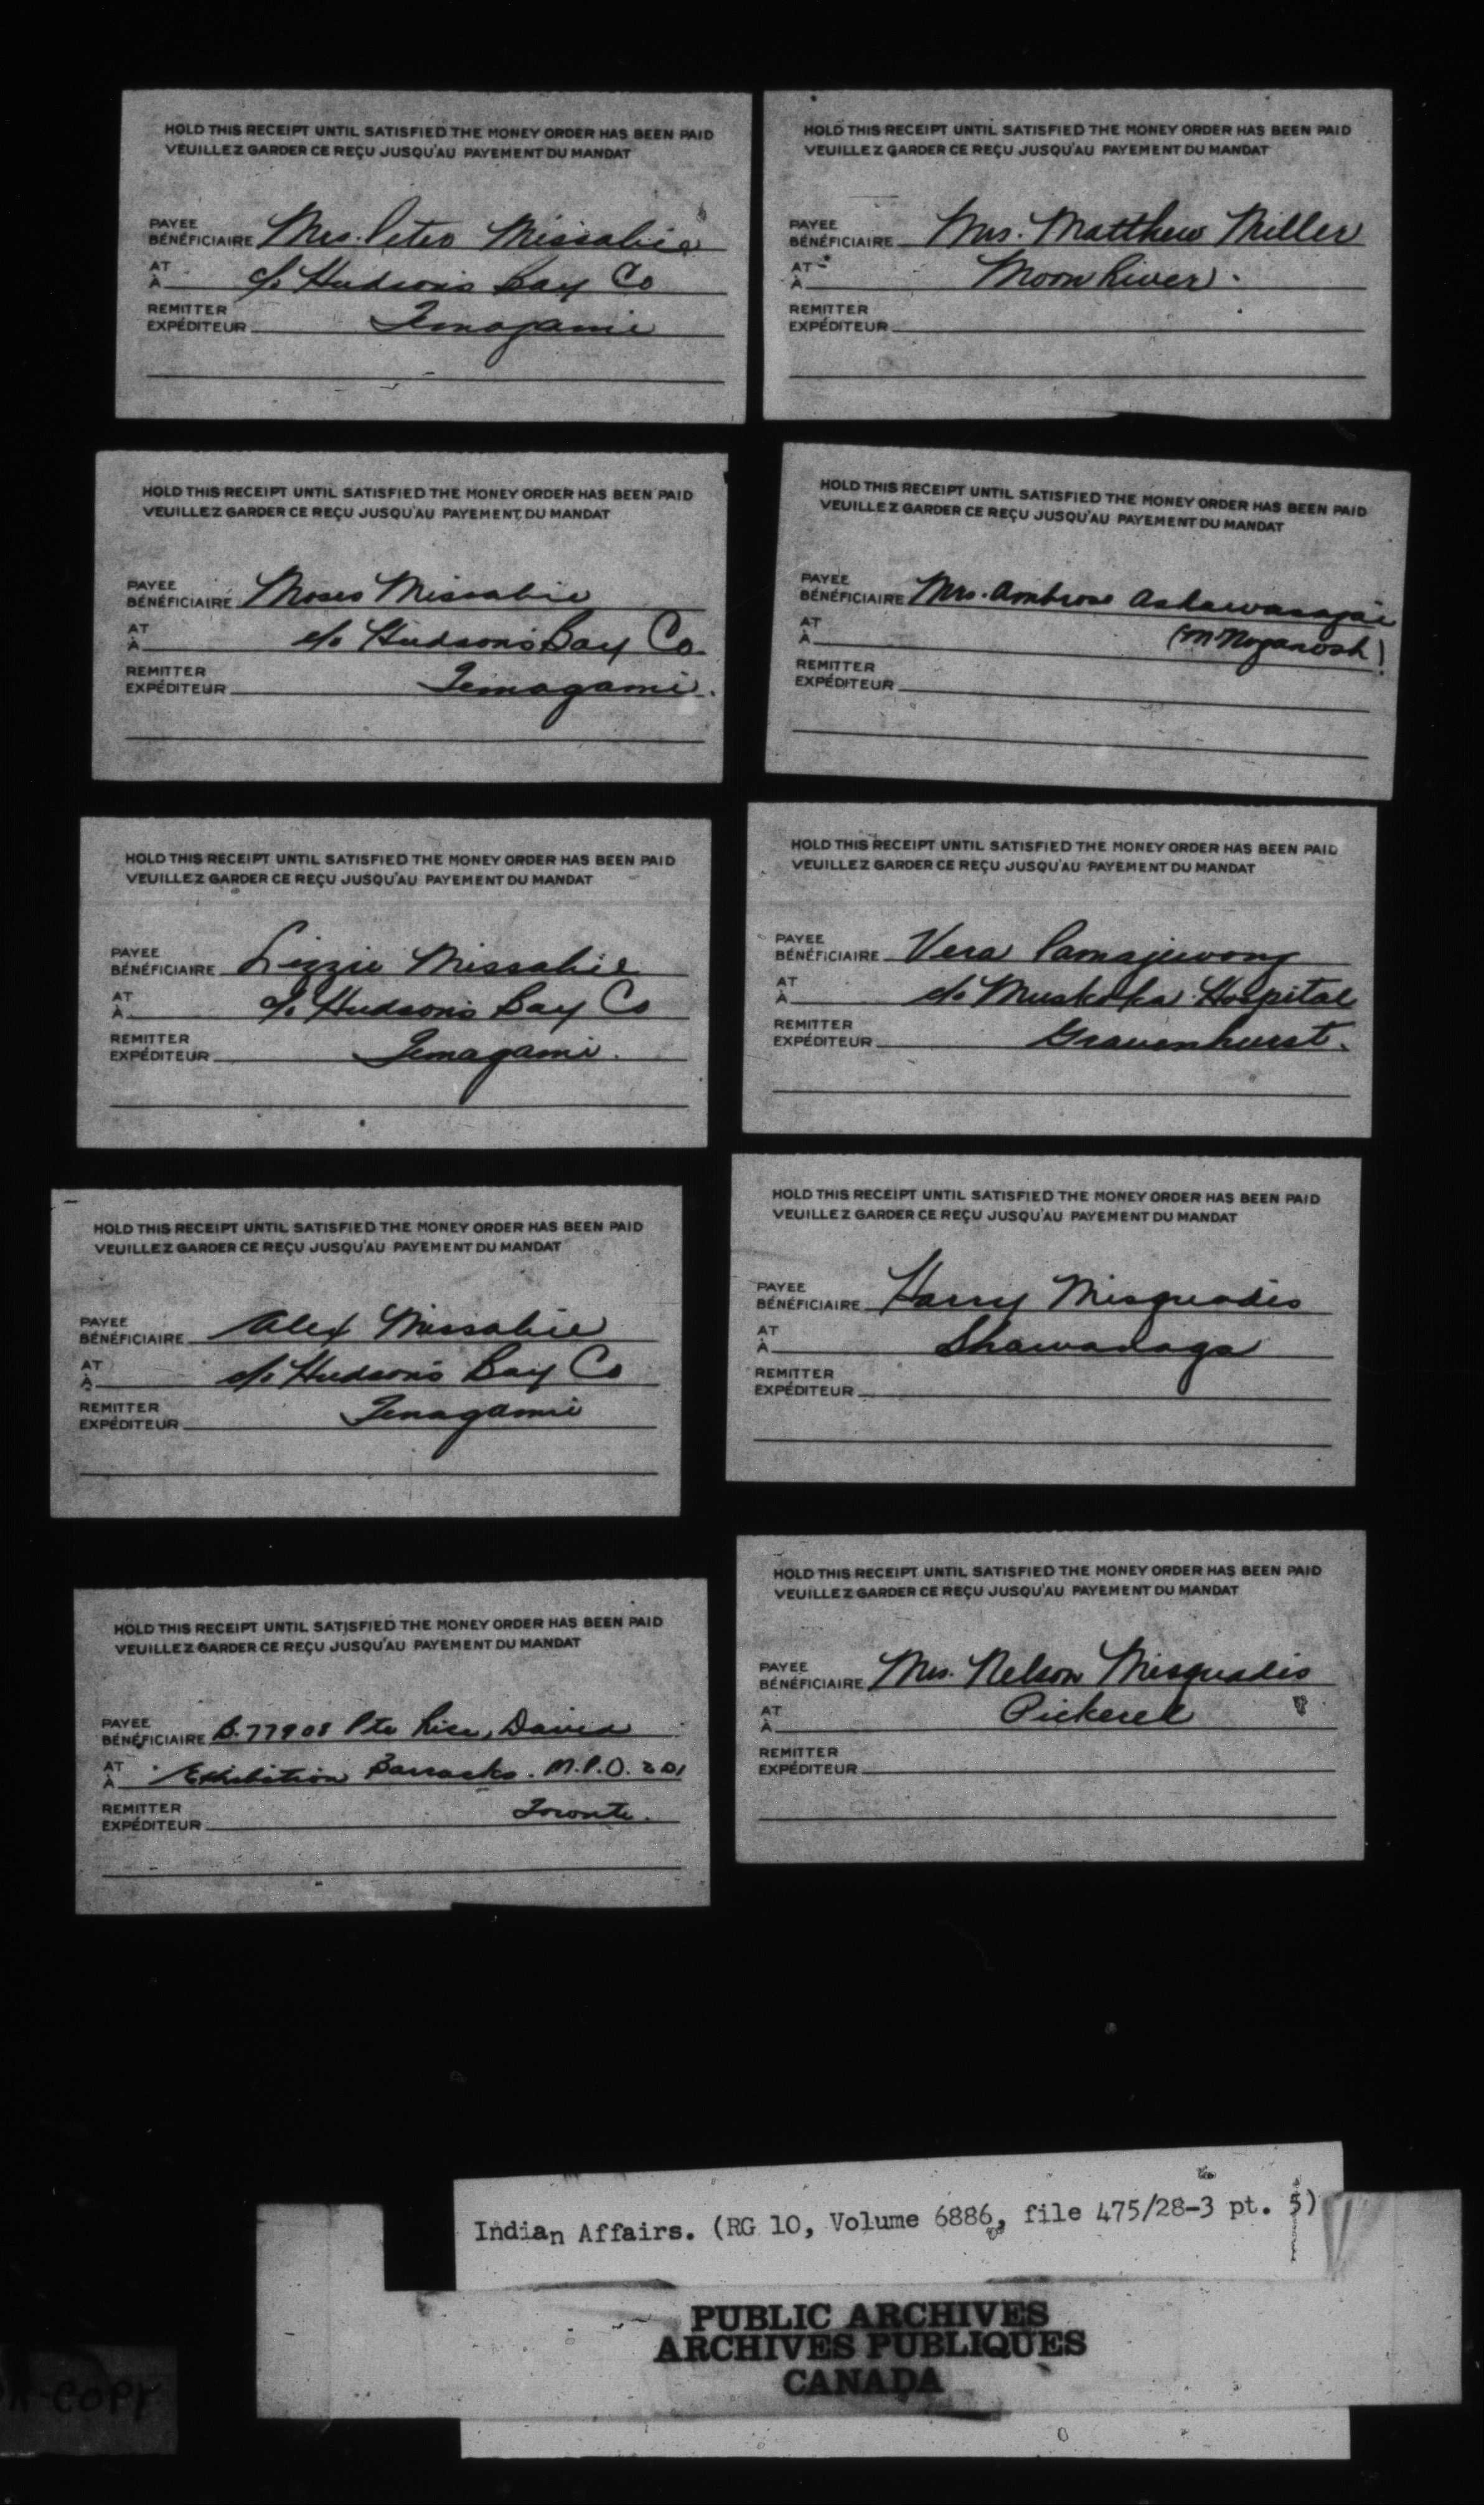 HOLD THIS RECEIPT UNTIL SATISFIED THE MONEY ORDER HAS BEEN PAID
VEUILLEZ GARDER CE REÇU JUSQU'AU PAYEMENT DU MANDAT
PAYEE
BÉNÉFICIAIRE Mrs. Peter Missabie
AT
À c/o Hudson's Bay Co
REMITTER
EXPÉDITEUR Temagami
HOLD THIS RECEIPT UNTIL SATISFIED THE MONEY ORDER HAS BEEN PAID
VEUILLEZ GARDER CE REÇU JUSQU'AU PAYEMENT DU MANDAT
PAYEE
BÉNÉFICIAIRE Mrs. Matthew Miller
AT
À Moon River.
REMITTER
EXPÉDITEUR
HOLD THIS RECEIPT UNTIL SATISFIED THE MONEY ORDER HAS BEEN PAID
VEUILLEZ GARDER CE REÇU JUSQU'AU PAYEMENT DU MANDAT
PAYEE
BÉNÉFICIAIRE Moses Missabie
AT
À c/o Hudson's Bay Co
REMITTER
EXPÉDITEUR Temagami.
HOLD THIS RECEIPT UNTIL SATISFIED THE MONEY ORDER HAS BEEN PAID
VEUILLEZ GARDER CE REÇU JUSQU'AU PAYEMENT DU MANDAT
PAYEE
BÉNÉFICIAIRE Mrs. Ambrose Ashawasagai
AT
À (M. Noganosh)
REMITTER
EXPÉDITEUR
HOLD THIS RECEIPT UNTIL SATISFIED THE MONEY ORDER HAS BEEN PAID
VEUILLEZ GARDER CE REÇU JUSQU'AU PAYEMENT DU MANDAT
PAYEE
BÉNÉFICIAIRE Lizzie Missabie
AT
À c/o Hudson's Bay Co
REMITTER
EXPÉDITEUR Temagami.
HOLD THIS RECEIPT UNTIL SATISFIED THE MONEY ORDER HAS BEEN PAID
VEUILLEZ GARDER CE REÇU JUSQU'AU PAYEMENT DU MANDAT
PAYEE
BÉNÉFICIAIRE Vera Pamajewong
AT
À c/o Muskoka Hospital
REMITTER
EXPÉDITEUR Gravenhurst.
HOLD THIS RECEIPT UNTIL SATISFIED THE MONEY ORDER HAS BEEN PAID
VEUILLEZ GARDER CE REÇU JUSQU'AU PAYEMENT DU MANDAT
PAYEE
BÉNÉFICIAIRE Alex Missabie
AT
À c/o Hudson's Bay Co
REMITTER
EXPÉDITEUR Temagami
HOLD THIS RECEIPT UNTIL SATISFIED THE MONEY ORDER HAS BEEN PAID
VEUILLEZ GARDER CE REÇU JUSQU'AU PAYEMENT DU MANDAT
PAYEE
BÉNÉFICIAIRE Harry Misquadis
AT
À Shawanaga
REMITTER
EXPÉDITEUR
HOLD THIS RECEIPT UNTIL SATISFIED THE MONEY ORDER HAS BEEN PAID
VEUILLEZ GARDER CE REÇU JUSQU'AU PAYEMENT DU MANDAT
PAYEE
BÉNÉFICIAIRE B.77908 Pte Rice, David
AT
À Exhibition Barracks. M.P.O. 201
REMITTER
EXPÉDITEUR Toronto.
HOLD THIS RECEIPT UNTIL SATISFIED THE MONEY ORDER HAS BEEN PAID
VEUILLEZ GARDER CE REÇU JUSQU'AU PAYEMENT DU MANDAT
PAYEE
BÉNÉFICIAIRE Mrs. Nelson Misquadis
AT
À Pickerel
REMITTER
EXPÉDITEUR
Indian Affairs. (RG 10, Volume 6886, file 475/28-3 pt. 5)
PUBLIC ARCHIVES
ARCHIVES PUBLIQUES
CANADA
COPY